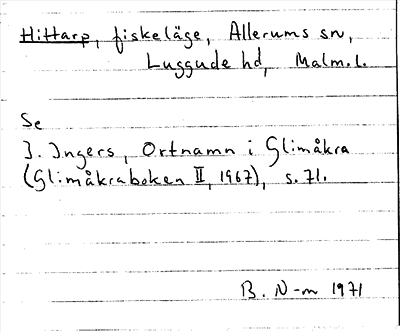 Hittarp, fiskeläge, Allerums sn,
Luggude hd, Malm.l.
Se
I. Ingers, Ortnamn i Glimåkra
(Glimåkraboken II, 1967), s. 71.
B. N-m 1971